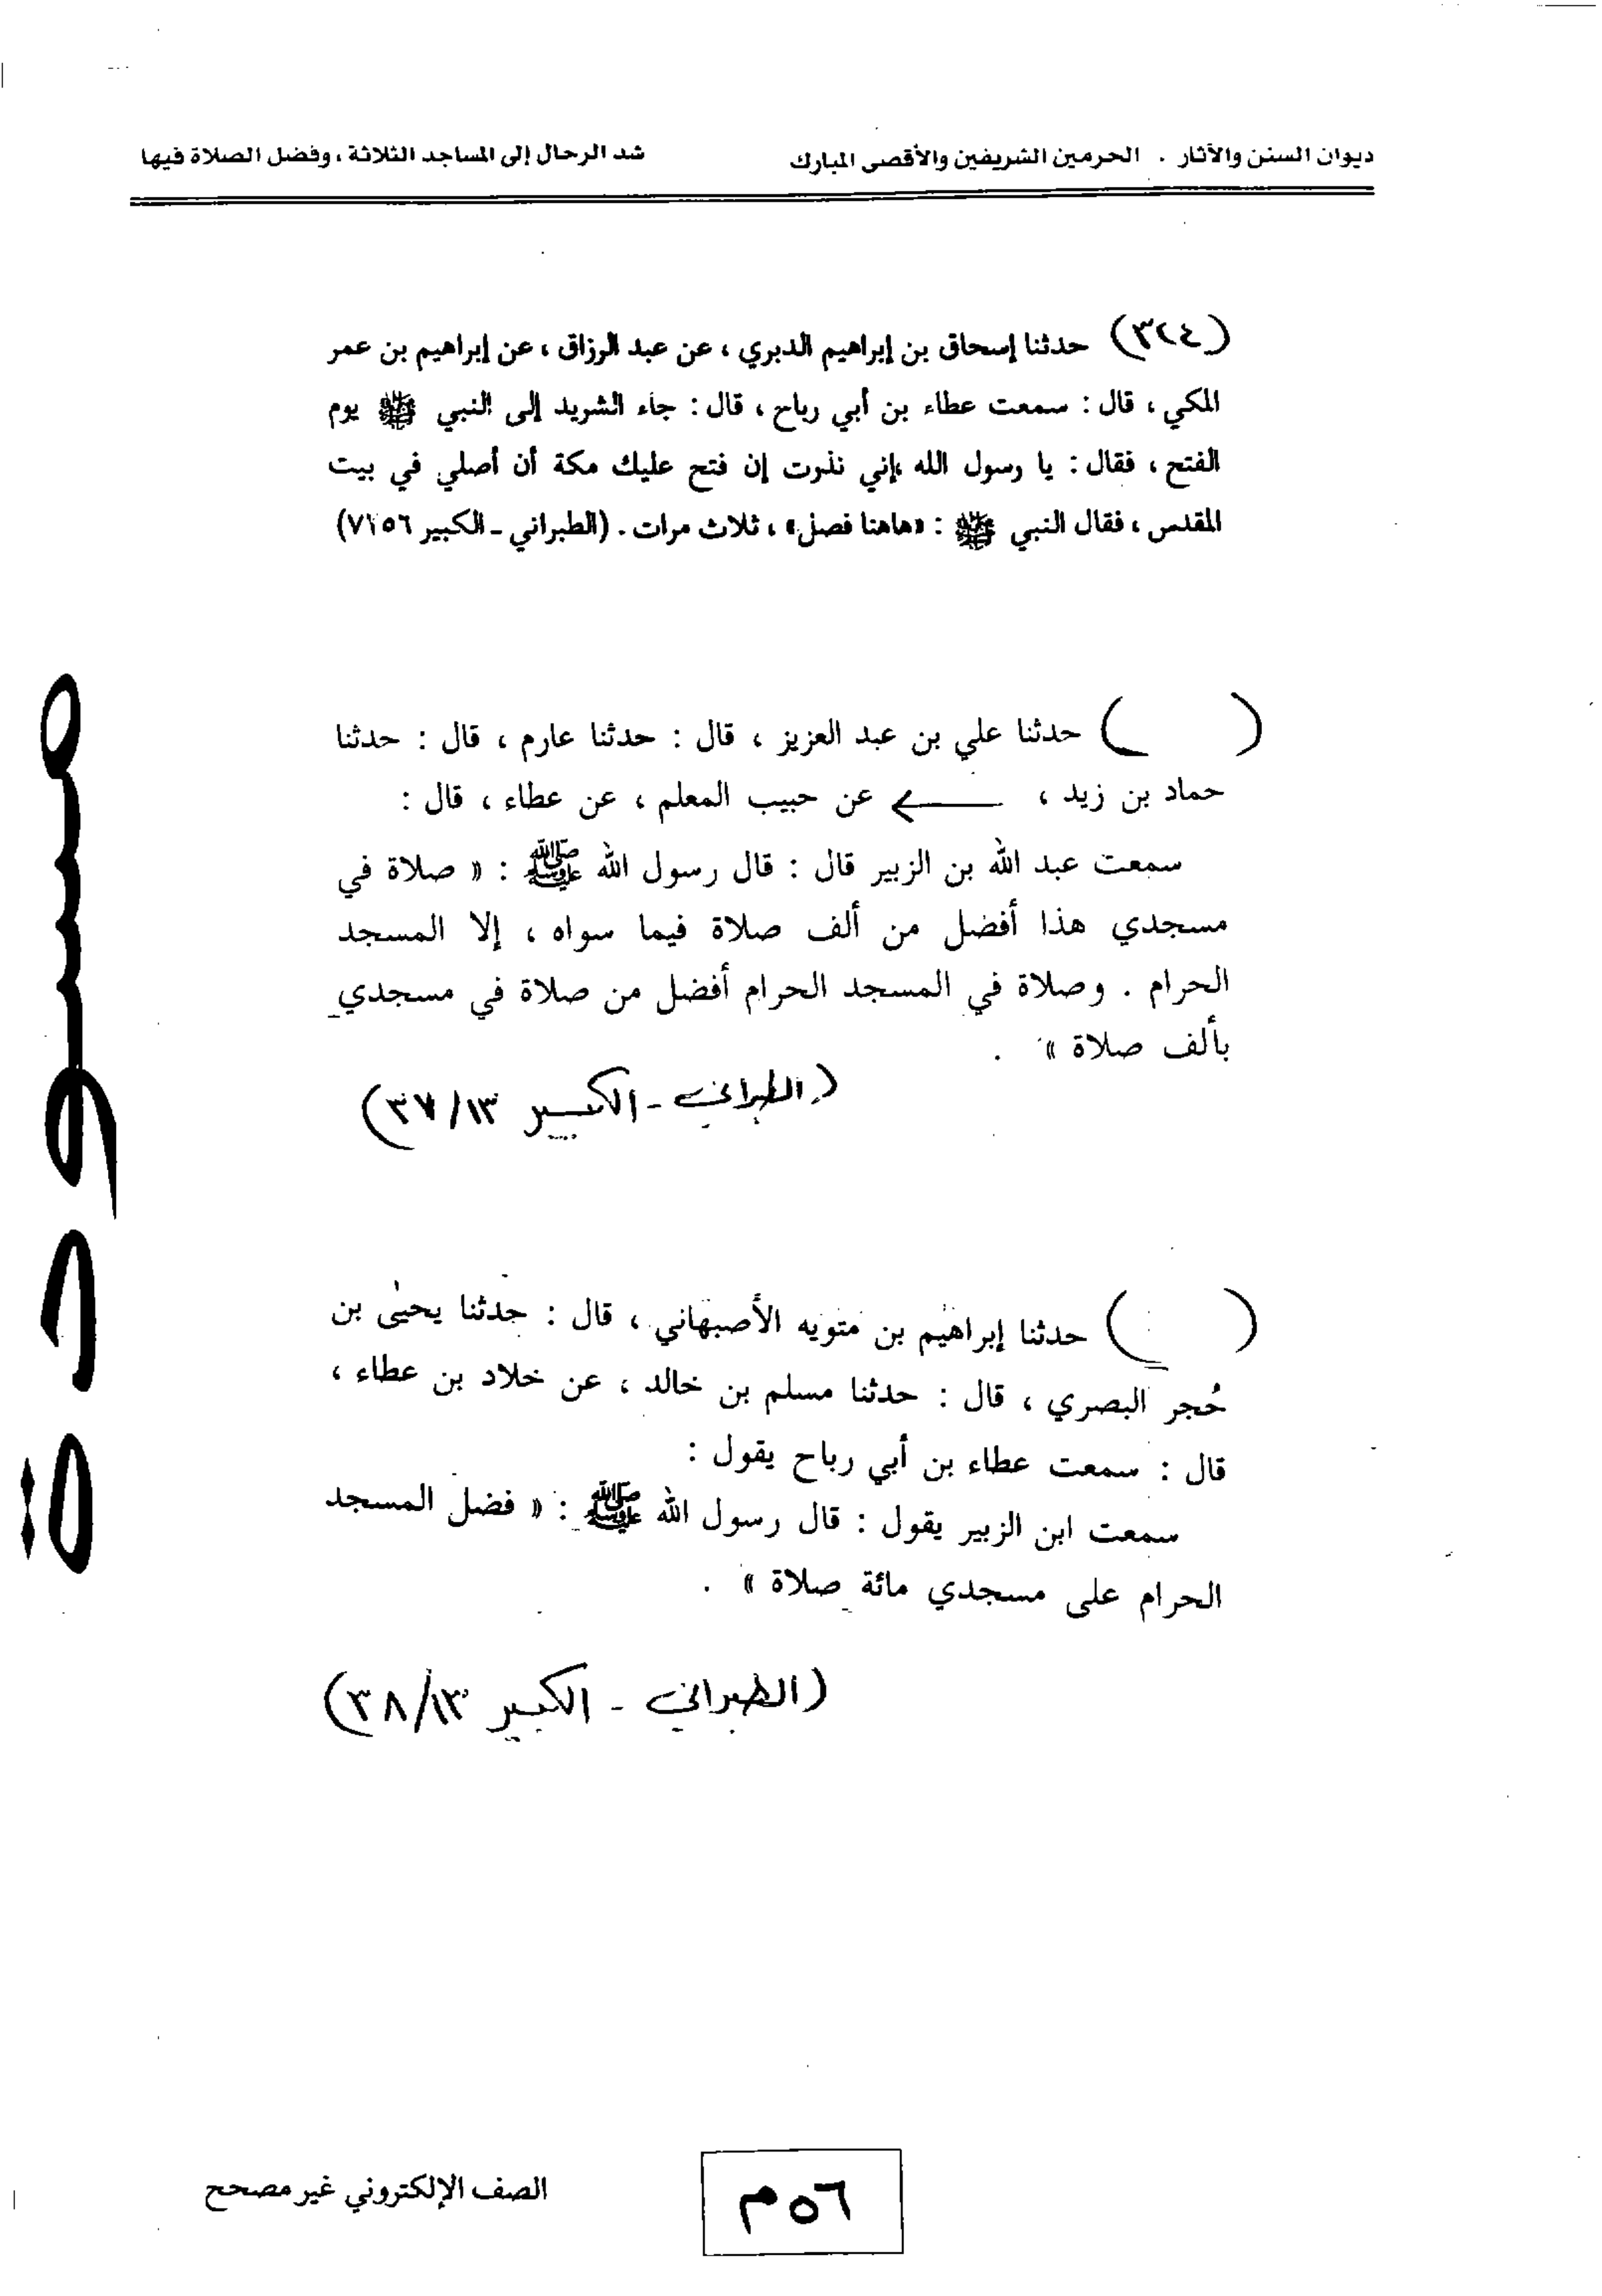 ديوان السنن والآثار . الحرمين الشريفين والأقصى المبارك
شد الرحال إلى المساجد الثلاثة ، وفضل الصلاة فيها
(٣٢٤) حدثنا إسحاق بن إبراهيم الدبري ، عن عبد الرزاق ، عن إبراهيم بن عمر
المكي ، قال : سمعت عطاء بن أبي رباح ، قال : جاء الشريد إلى النبي ﷺ يوم
الفتح ، فقال : يا رسول الله ،إني نذرت إن فتح عليك مكة أن أصلي في بيت
المقدس ، فقال النبي ﷺ : «هاهنا فصل» ، ثلاث مرات . (الطبراني ـ الكبير ٧٢٥٦)
( ) حدثنا علي بن عبد العزيز ، قال : حدثنا عارم ، قال : حدثنا
حماد بن زيد ، ← عن حبيب المعلم ، عن عطاء ، قال :
سمعت عبد الله بن الزبير قال : قال رسول الله ﷺ : « صلاة في
مسجدي هذا أفضل من ألف صلاة فيما سواه ، إلا المسجد
الحرام . وصلاة في المسجد الحرام أفضل من صلاة في مسجدي
بألف صلاة » .
(الطبراني - الكبير ٣٧/١٣)
( ) حدثنا إبراهيم بن متويه الأصبهاني ، قال : حدثنا يحيى بن
حُجر البصري ، قال : حدثنا مسلم بن خالد ، عن خلاد بن عطاء ،
قال : سمعت عطاء بن أبي رباح يقول :
سمعت ابن الزبير يقول : قال رسول الله ﷺ : « فضل المسجد
الحرام على مسجدي مائة صلاة » .
(الطبراني - الكبير ٣٨/١٣)
مسودة
٥٦ م
الصف الإلكتروني غير مصحح